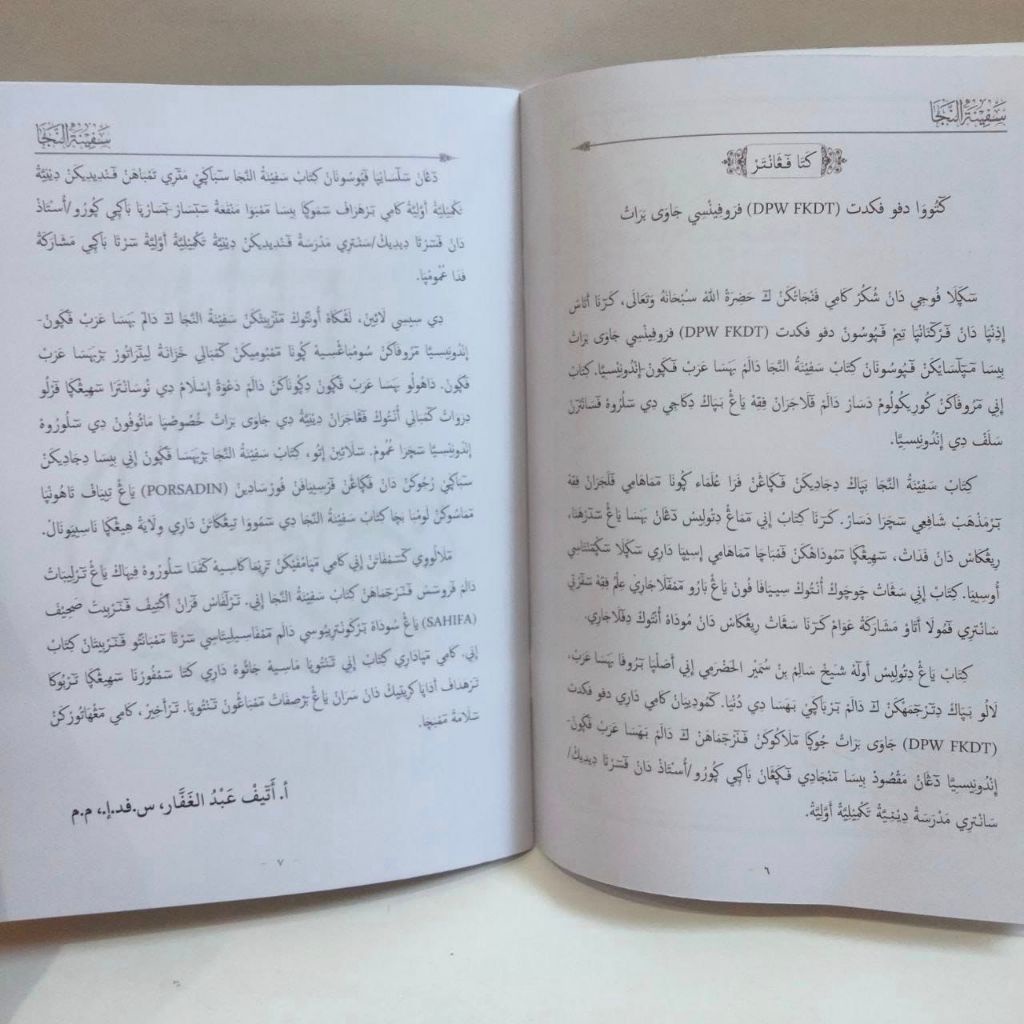 سَفِيْنَةُ النَّجَا
كَتَا ڤڠَانْتَرْ
كٓتُووَا دفو فكدت (DPW FKDT) فرَوفِينْسِي جَاوَى بَرَاتْ
سٓڬَلَا فُوجِي دَانْ شُكُرْ كَامِي فَنْجَاتْكَنْ كٓ حَضِرَةْ اللهْ سُبْحَانَهُ وَتَعَالَى، كَرٓنَا أَتَاسْ
إِذِنْيَا دَانْ فٓرْكٓنَانْيَا تِيمْ ڤٓيُوسُونْ دفو فكدت (DPW FKDT) فرَوفِينْسِي جَاوَى بَرَاتْ
بِيسَا مٓيٓلٓسَايْكَنْ ڤٓيُوسُونَانْ كِتَابْ سَفِيْنَةُ النَّجَا دَالَمْ بَهَسَا عَرَبْ ڤٓڬَونْ-إِنْدُونِيْسِيَّا. كِتَابْ
إِنِي مٓرُوفَاكَنْ كُورِيكُولُومْ دَسَارْ دَالَمْ ڤٓلَاجَرَانْ فِقِهْ يَاڠْ بَيَاكْ دِكَاجِي دِي سٓلُرُوهْ فٓسَانْتْرَنْ
سَلَفْ دِي إِنْدُونِيْسِيَّا.
كِتَابْ سَفِيْنَةُ النَّجَا بَيَاكْ دِجَادِيكَنْ ڤٓڬَاڠَنْ فَرَا عُلَمَاء ڬُونَا مٓمَاهَامِي ڤٓلَجَرَانْ فِقِهْ
بٓرْمَذْهَبْ شَافِعِي سٓچَرَا دَسَارْ. كَرٓنَا كِتَابْ إِنِي مٓمَاڠْ دِتُولِيسْ دٓڠَانْ بَهَسَا يَاڠْ سٓدٓرْهَنَا،
رِيڠْكَاسْ دَانْ فَدَاتْ، سٓهِيڠْڬَا مٓمُودَاهْكَنْ ڤٓمْبَاچَا مٓمَاهَامِي إِسِيْيَا دَارِي سٓڬَلَا سٓڬْمٓنْتَاسِي
أُوسِيْيَا. كِتَابْ إِنِي سَڠَاتْ چَوچَوكْ أُنْتُوكْ سِيَافَا فُونْ يَاڠْ بَارُو مٓمْڤٓلَاجَارِي عِلْمُ فِقِهْ سٓفٓرْتِي
سَانْتْرِي ڤٓمُولَا أَتَاوْ مَشَارَكَةْ عَوَامْ كَرٓنَا سَڠَاتْ رِيڠْكَاسْ دَانْ مُودَاهْ أُنْتُوكْ دِڤٓلَاجَارِي.
كِتَابْ يَاڠْ دِتُولِيسْ أُولٓهْ شَيخْ سَالِمْ بنْ سُمَيْرْ الحَضْرَمِي إِنِي أَصْلِيْيَا بٓرُوفَا بَهَسَا عَرَبْ،
لَالُو بَيَاكْ دِتٓرْجَمَهْكَنْ كٓ دَالَمْ بٓرْبَاڬَيْ بَهَسَا دِي دُنْيَا. كٓمُودِييَانْ كَامِي دَارِي دفو فكدت
(DPW FKDT) جَاوَى بَرَاتْ جُوڬَا مٓلَاكُوكَنْ ڤٓنٓرْجَمَاهَنْ كٓ دَالَمْ بَهَسَا عَرَبْ ڤٓڬَونْ-
إِنْدُونِيْسِيَّا دٓڠَانْ مَقْصُودْ بِيسَا مٓنْجَادِي ڤٓڬَاڠَانْ بَاڬَيْ ڬُورُو/أُسْتَاذْ دَانْ ڤٓسٓرْتَا دِيدِيكْ/
سَانْتْرِي مَدْرَسَةْ دِيْنِيَّةْ تَكْمِيْلِيَّةْ أَوَّلِيَّةْ.
٦
سَفِيْنَةُ النَّجَا
دٓڠَانْ سٓلٓسَايْيَا ڤٓيُوسُونَانْ كِتَابْ سَفِيْنَةُ النَّجَا سٓبَاڬَيْ مَتٓرِي تَمْبَاهَنْ ڤٓنْدِيدِيكَنْ دِيْنِيَّةْ
تَكْمِيْلِيَّةْ أَوَّلِيَّةْ كَامِي بٓرْهَرَافْ سٓمَوڬَا بِيسَا مٓمْبَوَا مَنْفَعَةْ سٓبٓسَارْ-بٓسَارْيَا بَاڬَيْ ڬُورُو/أُسْتَاذْ
دَانْ ڤٓسٓرْتَا دِيدِيكْ/سَنْتْرِي مَدْرَسَةْ ڤٓنْدِيدِيكَنْ دِيْنِيَّةْ تَكْمِيْلِيَّةْ أَوَّلِيَّةْ سٓرْتَا بَاڬَيْ مَشَارَكَةْ
فَدَا عُمُومْيَا.
دِي سِيسِي لَائِينْ، لَڠْكَاهْ أُونْتُوكْ مٓنٓرْبِيتْكَنْ سَفِيْنَةُ النَّجَا كٓ دَالَمْ بَهَسَا عَرَبْ ڤٓڬَونْ-
إِنْدُونِيْسِيَّا مٓرُوفَاكَنْ سُومْبَاڠْسِيهْ ڬُونَا مٓمْبُومِيكَنْ كٓمْبَالِي خَزَانَةْ لِيتٓرَاتُورْ بٓرْبَهَسَا عَرَبْ
ڤٓڬَونْ. دَاهُولُو بَهَسَا عَرَبْ ڤٓڬَونْ دِڬُونَاكَنْ دَالَمْ دَعْوَةْ إِسْلَامْ دِي نُوسَانْتَرَا سٓهِيڠْڬَا فٓرْلُو
دِرَوَاتْ كٓمْبَالِي أُنْتُوكْ ڤٓڠَاجَرَانْ دِيْنِيَّةْ دِي جَاوَى بَرَاتْ خُصُوصْيَا مَاءُوفُونْ دِي سٓلُورُوهْ
إِنْدُونِيْسِيَّا سٓچَرَا عُمُومْ. سٓلَائِينْ إِتُو، كِتَابْ سَفِيْنَةُ النَّجَا بٓرْبَهَسَا ڤٓڬَونْ إِنِي بِيسَا دِجَادِيكَنْ
سٓبَاڬَيْ رُجُوكَنْ دَانْ ڤٓڬَاڠَنْ فٓرْسِيَافَنْ فَورْسَادِينْ (PORSADIN) يَاڠْ تِييَافْ تَاهُونْيَا
مٓمَاسُوكَنْ لَومْبَا بَچَا كِتَابْ سَفِيْنَةُ النَّجَا دِي سٓمُووَا تِيڠْكَاتَنْ دَارِي وِلَايَةْ هِيڠْڬَا نَاسِييَونَالْ.
مٓلَالُووِي كٓسٓمْفَاتَنْ إِنِي كَامِي مٓيَامْفَيْكَنْ تٓرِيمَا كَاسِيهْ كٓفَدَا سٓلُورُوهْ فِيهَاكْ يَاڠْ تٓرْلِيبَاتْ
دَالَمْ فرَوسٓسْ فٓنٓرْجَمَاهَنْ كِتَابْ سَفِيْنَةُ النَّجَا إِنِي. تٓرْلٓفَاسْ فٓرَانْ أَكْتِيفْ ڤٓنٓرْبِيتْ صَحِيْفَ
(SAHIFA) يَاڠْ سُودَاهْ بٓرْكَونْتْرِيبُوسِي دَالَمْ مٓمْفَاسِيلِيتَاسِي سٓرْتَا مٓمْبَانْتُو ڤٓنٓرْبِيتَانْ كِتَابْ
إِنِي. كَامِي مٓيَادَارِي كِتَابْ إِنِي تٓنْتُويَا مَاسِيهْ جَاءُوهْ دَارِي كَتَا سٓمْفُورْنَا سٓهِيڠْڬَا تٓرْبُوكَا
تٓرْهَدَافْ أَدَايَا كْرِيتِيكْ دَانْ سَرَانْ يَاڠْ بٓرْصِفَاتْ مٓمْبَاڠُونْ تٓنْتُويَا. تٓرْأَخِيرْ، كَامِي مٓڠْهَاتُورْكَنْ
سٓلَامَةْ مٓمْبَچَا.
أ. أَتِيفْ عَبْدُ الغَفَّار، س.فد.إ.، م.م
٧